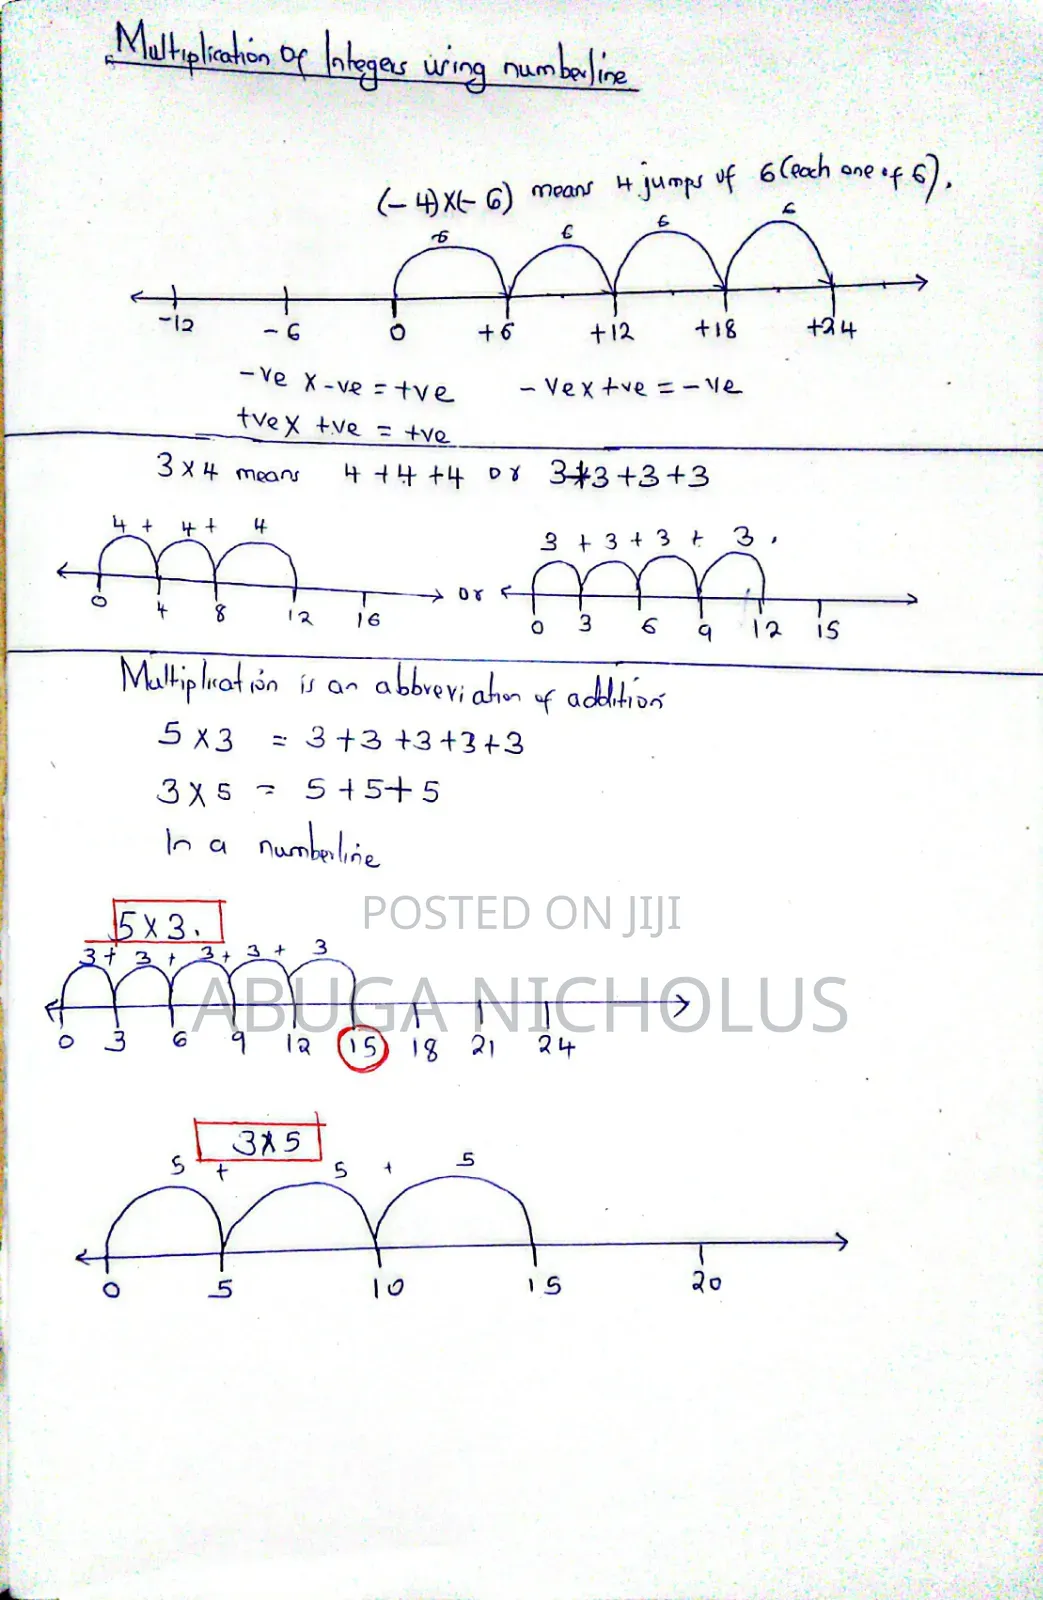 Multiplication Of Integers using numberline
(-4)x(-6) means 4 jumps of 6 (each one of 6).
6 6 6 6
-12 -6 0 +6 +12 +18 +24
-ve x -ve = +ve   -ve x +ve = -ve
+ve x +ve = +ve
3 x 4 means 4 + 4 + 4 or 3+3+3+3
4 + 4 + 4
0 4 8 12 16
or
3 + 3 + 3 + 3 .
0 3 6 9 12 15
Multiplication is an abbreviation of addition
5 x 3 = 3 + 3 + 3 + 3 + 3
3 x 5 = 5 + 5 + 5
In a numberline
POSTED ON JIJI
5 x 3.
3 + 3 + 3 + 3 + 3
ABUGA NICHOLUS
0 3 6 9 12 15 18 21 24
3 x 5
5 + 5 + 5
0 5 10 15 20